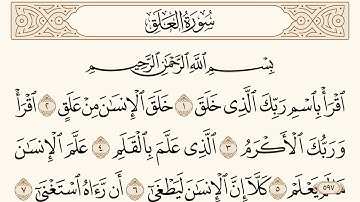 سُورَةُ العَلَقِ
بِسْمِ ٱللَّهِ ٱلرَّحْمَٰنِ ٱلرَّحِيمِ
ٱقْرَأْ بِٱسْمِ رَبِّكَ ٱلَّذِى خَلَقَ ١ خَلَقَ ٱلْإِنسَٰنَ مِنْ عَلَقٍ ٢ ٱقْرَأْ
وَرَبُّكَ ٱلْأَكْرَمُ ٣ ٱلَّذِى عَلَّمَ بِٱلْقَلَمِ ٤ عَلَّمَ ٱلْإِنسَٰنَ
مَا لَمْ يَعْلَمْ ٥ كَلَّآ إِنَّ ٱلْإِنسَٰنَ لَيَطْغَىٰٓ ٦ أَن رَّءَاهُ ٱسْتَغْنَىٰٓ ٧
٥٩٧